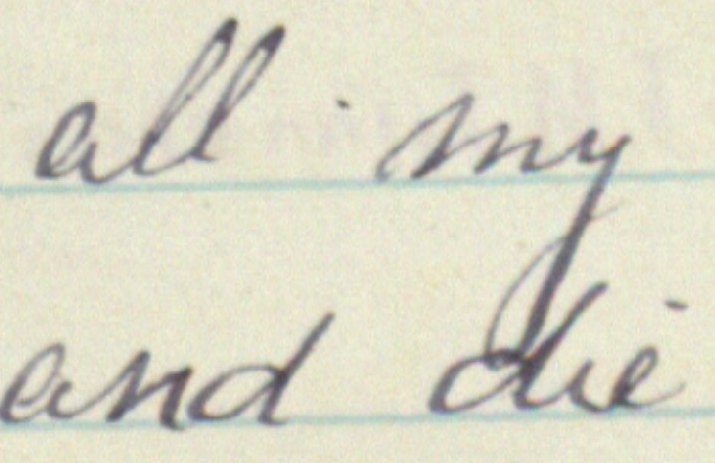 all my
and die